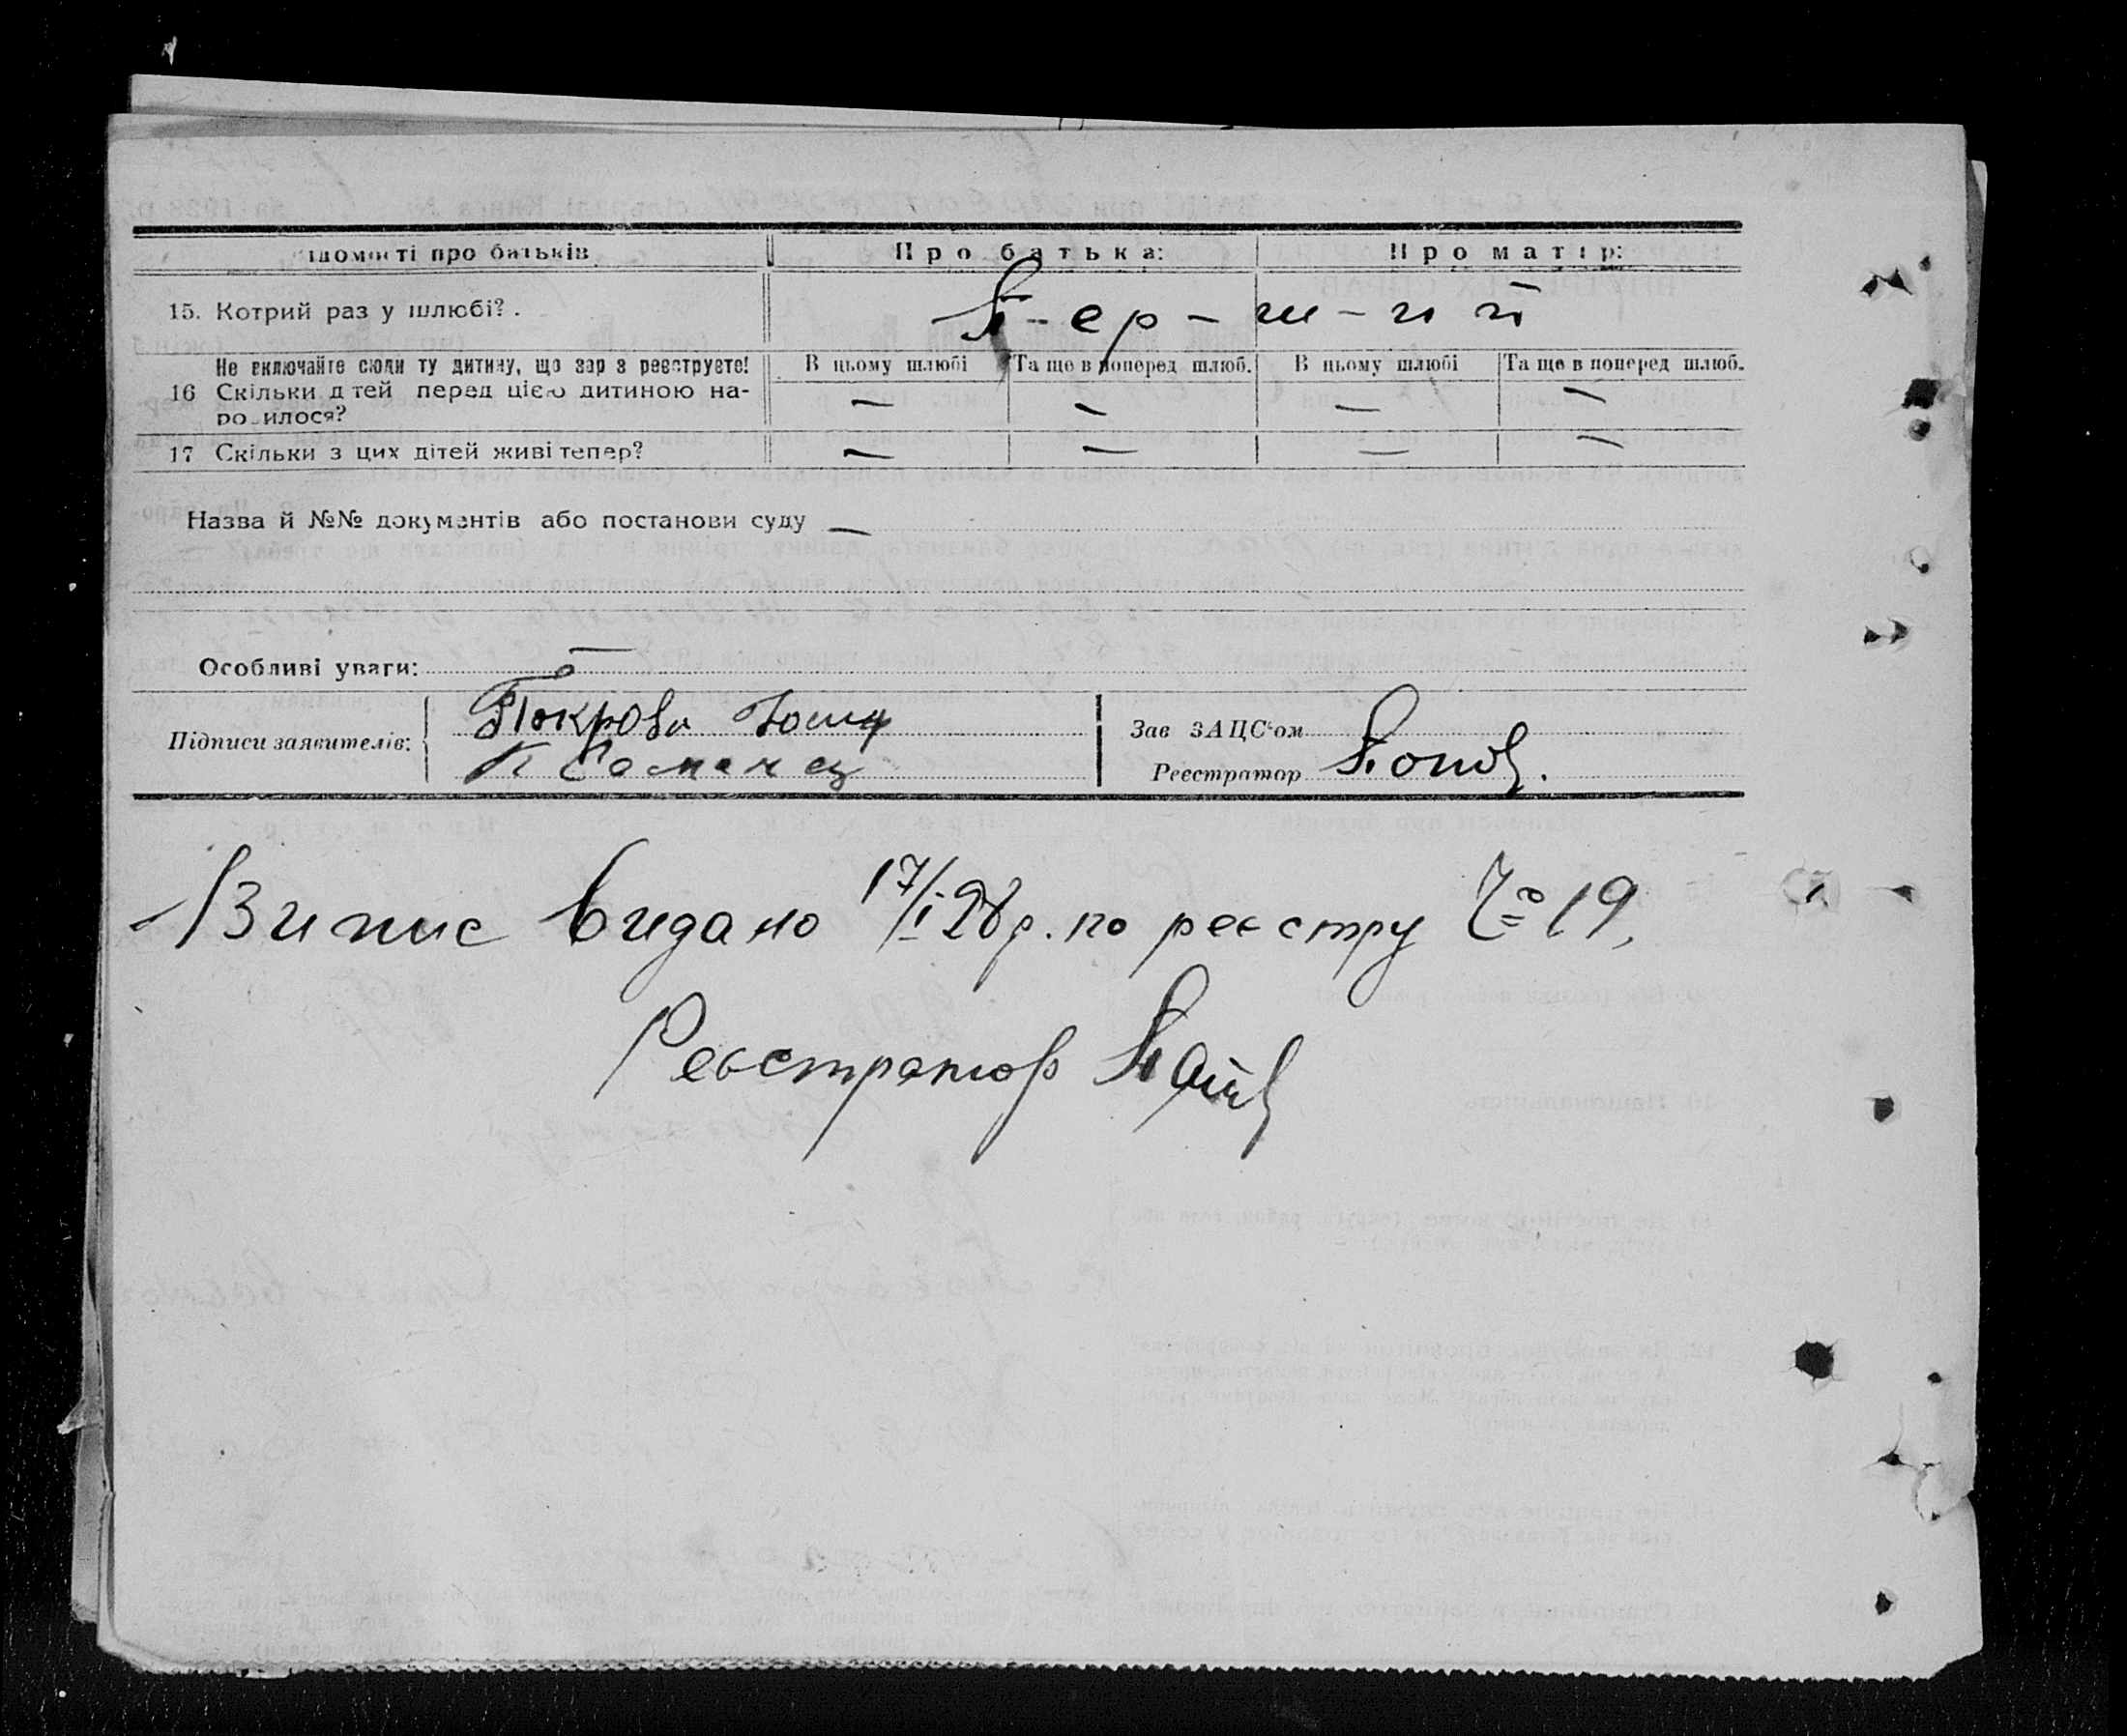 ідомості про батьків Про батька: Про матір:
15. Котрий раз у шлюбі? . П-ер-ш-ий
Не включайте сюди ту дитину, що зар з реєструєте! В цьому шлюбі Та ще в поперед шлюб. В цьому шлюбі Та ще в поперед шлюб.
16 Скільки д тей перед цією дитиною на- — — — —
ро илося?
17 Скільки з цих дітей живі тепер? — — — —
Назва й №№ документів або постанови суду —
Особливі уваги: —
Підписи заявителів: Зав ЗАЦС'ом
Реєстратор
Випис видано 17/I 28 р. по реєстру № 19,
Реєстратор